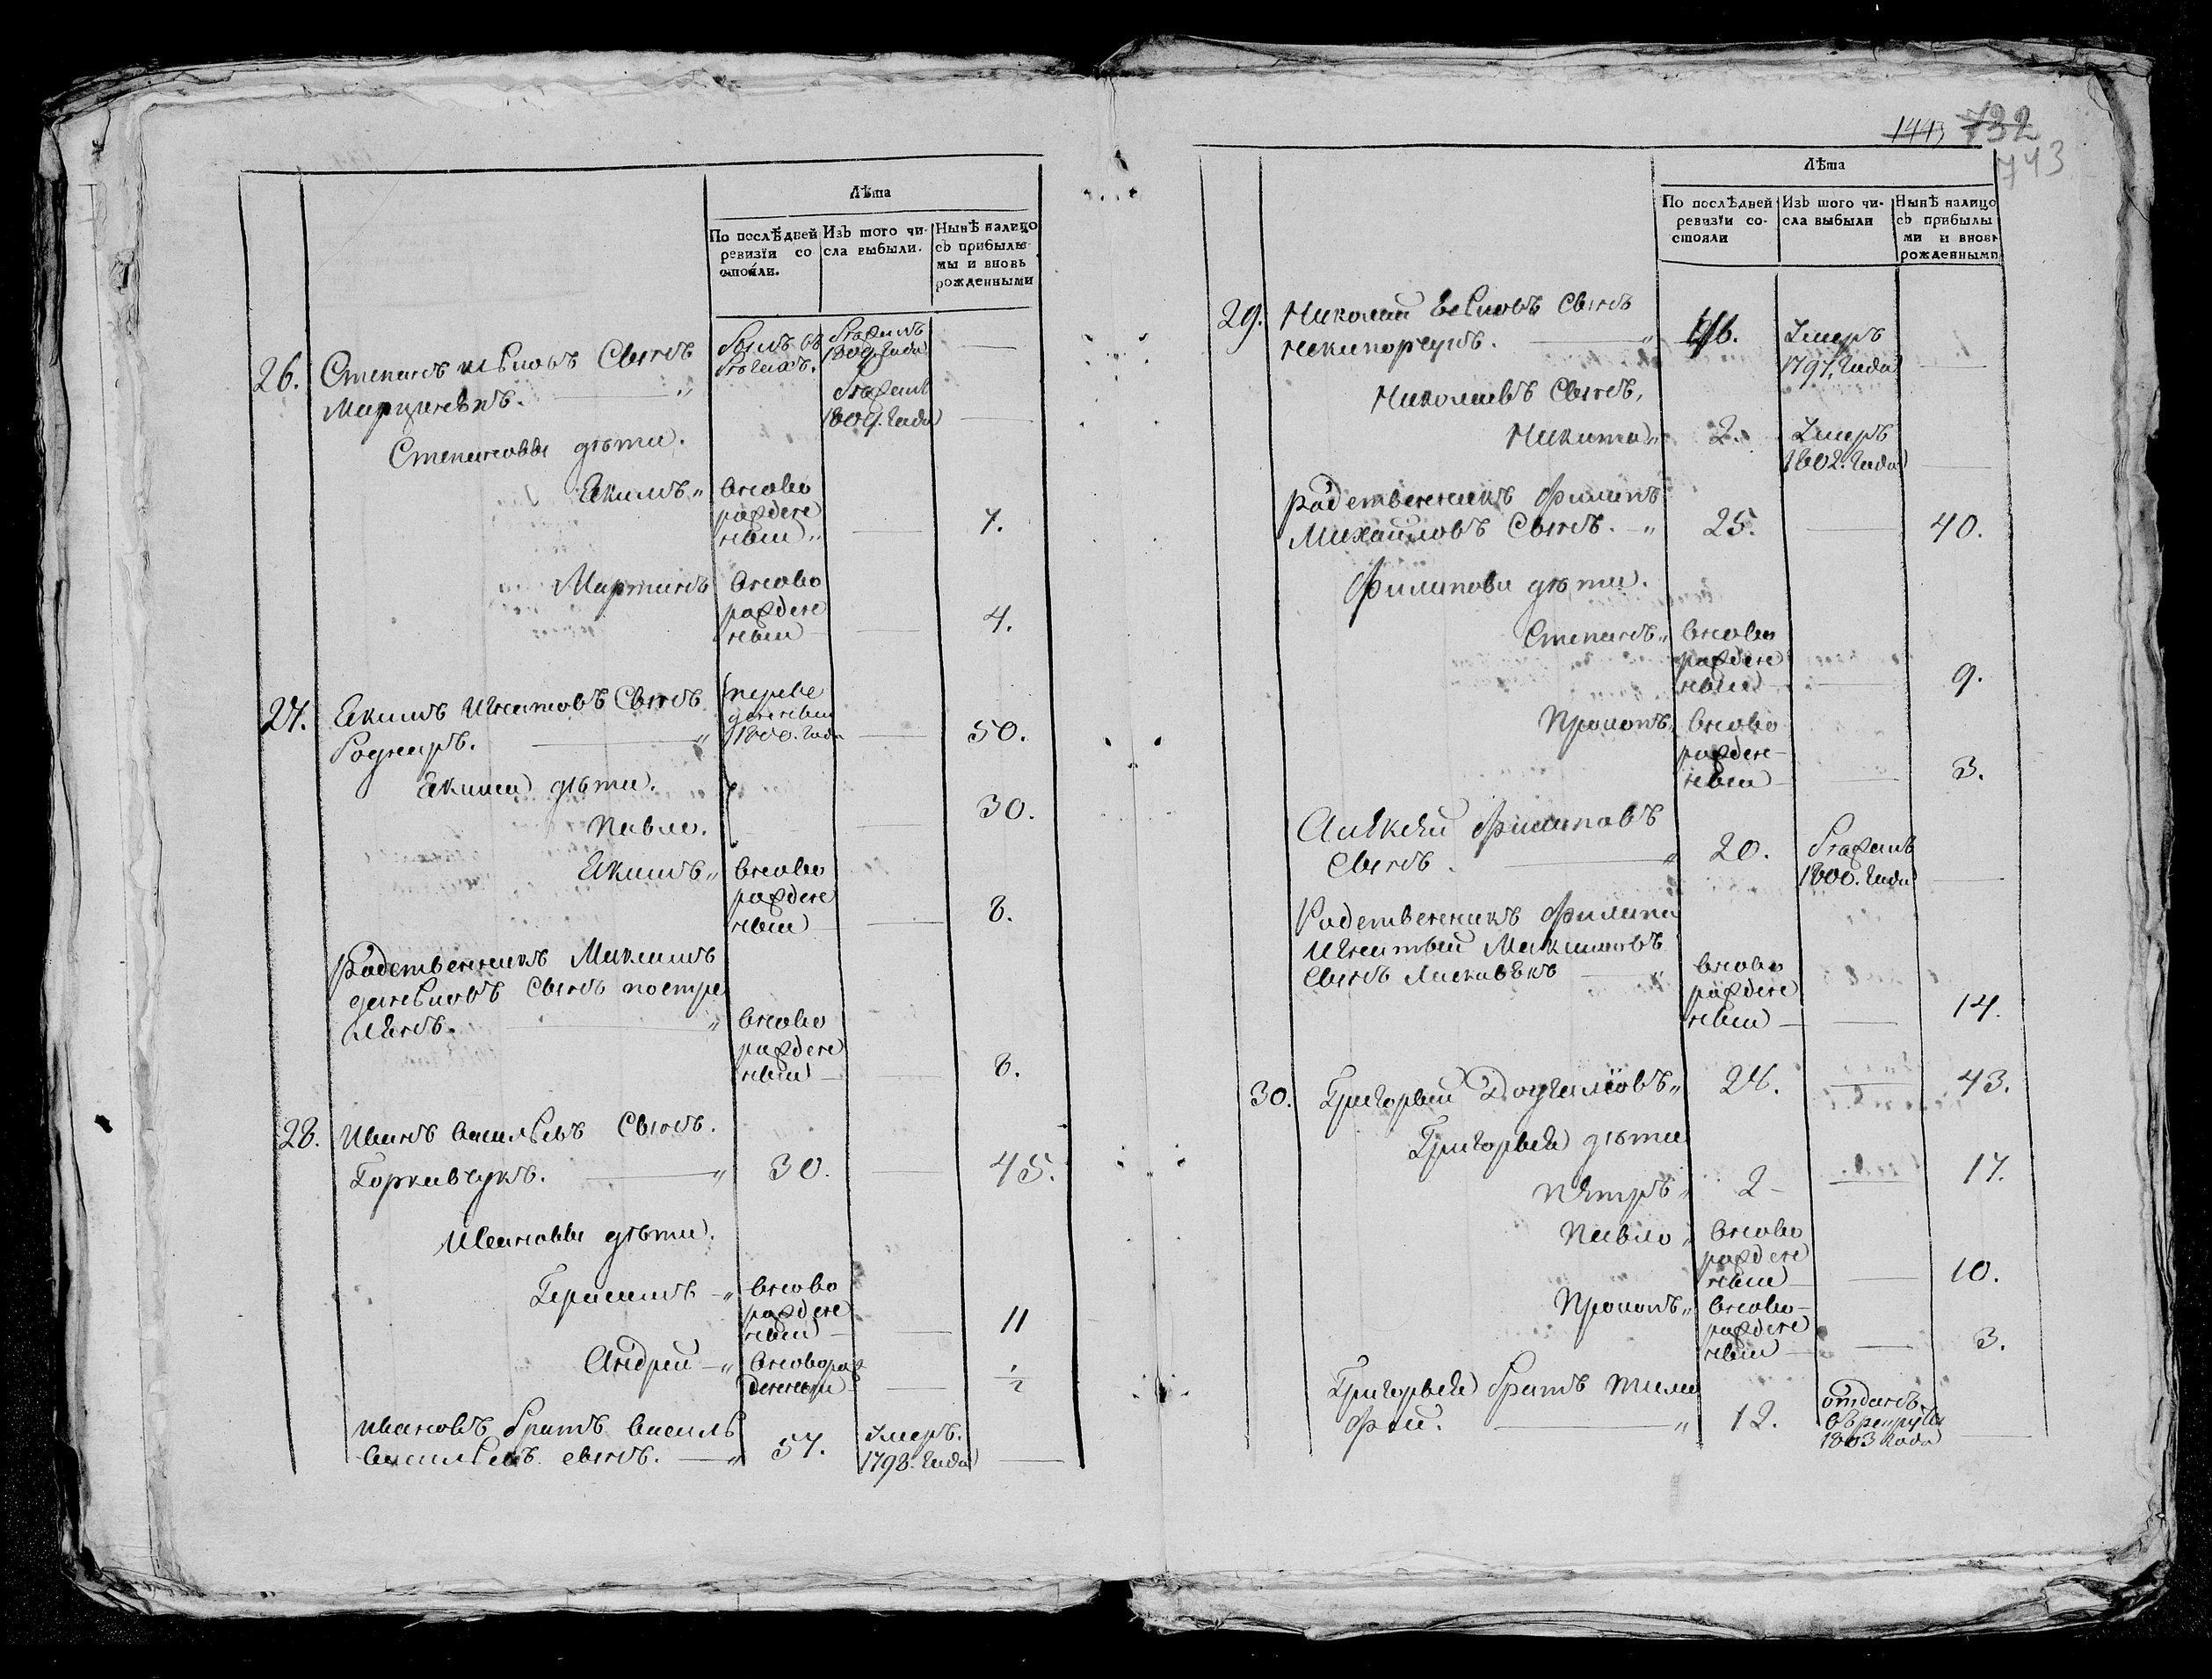 Лѣта
По послѣдней ревизїи со стояли.
Изъ того чи- сла выбыли.
Нынѣ налицо съ прибылы- мы и вновь рожденными
26. Степанъ Сынъ
бѣжалъ 1809. Года
Степановы дѣти.
Екимъ " вново
рожден
ный " 7.
Мартинъ вново
рожден
ный 4.
27. Екимъ Игнатовъ Сынъ
переве
денный
1800. Года 50.
Екима дѣти.
Павло. 30.
Екимъ " вново
рожден
ный 8.
Родственникъ Максимъ
Сынъ
вново
рожден
ный 8.
28. Иванъ Васильевъ Сынъ.
Горкавчукъ. " 30. 45.
Ивановы дѣти.
Герасимъ " вново
рожден
ный 11
Андрей " вноворож
денный 1/2
Ивановъ братъ Василь
Васильевъ сынъ. " 57. Умеръ.
1798. Года
1443 732
743
Лѣта
По послѣдней ревизїи со- стояли
Изъ того чи- сла выбыли
Нынѣ налицо съ прибылы ми и вновь рожденными
29. Николай Сынъ
Никипорчукъ. " 46. Умеръ
1797. Года
Николаевъ Сынъ,
Никита " 2. Умеръ
1802. Года
Родственникъ Филипъ
Михайловъ Сынъ. " 25. 40.
Филипова дѣти.
Степанъ " вново
рожден
ный 9.
Прокопъ " вново
рожден
ный 3.
Алексей Филиповъ
Сынъ. " 20. бѣжалъ
1800. Года
Родственникъ Филипа
Игнатый Максимовъ
Сынъ " вново
рожден
ный 14.
30. Григорый " 27. 43.
Григорыя дѣти
Петръ " 2 17.
Павло " вново
рожден
ный 10.
Прокопъ " вново
рожден
ный 3.
Григорыя братъ Тимо
фей. " 12. отданъ
въ рекруты
1803 Года